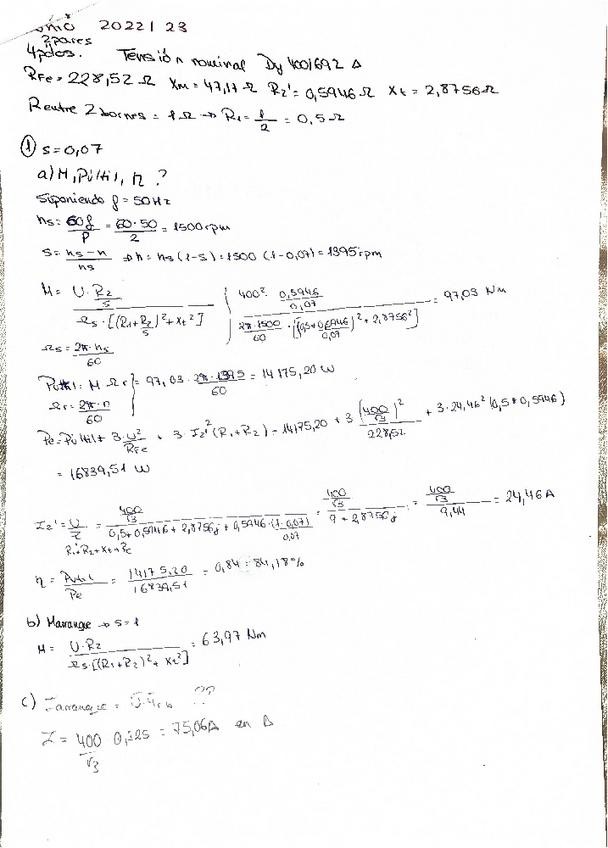 2022 | 23
2 pares
4 polos. Tensión nominal Dy 400/692 Δ
RFe = 228,52 Ω Xm = 47,17 Ω R2' = 0,5946 Ω Xt = 2,8756 Ω
R entre 2 bornes = 1 Ω → R1 = 1/2 = 0,5 Ω
① s = 0,07
a) M, Pútil, η ?
Suponiendo f = 50 Hz
ns = 60f/P = 60·50/2 = 1500 rpm
s = (ns - n)/ns → n = ns (1-s) = 1500 (1-0,07) = 1395 rpm
M = (U · R2/s) / (Ωs · [(R1+R2/s)² + Xt²]) } (400² · 0,5946/0,07) / (2π·1500/60 · [(0,5+0,5946/0,07)² + 2,8756²]) = 97,03 Nm
Ωs = 2π·ns/60
Pútil = M Ωr } = 97,03 · 2π·1395/60 = 14175,20 W
Ωr = 2π·n/60
Pe = Pútil + 3·U²/RFe + 3·I2'² (R1+R2) = 14175,20 + 3 (400/√3)²/228,52 + 3·24,46² (0,5+0,5946)
= 16839,51 W
I2' = U/Z = (400/√3) / (0,5+0,5946+2,8756j+0,5946·(1-0,07)/0,07) = (400/√3) / (9+2,8756j) = (400/√3) / 9,44 = 24,46 A
R1+R2+Xt+Rc
η = Pútil/Pe = 14175,20/16839,51 = 0,84 = 84,18%
b) Marranque → s=1
M = U·R2 / (Ωs·[(R1+R2)² + Xt²]) = 63,97 Nm
c) Iarranque = ??
I = 400/√3 0,325 = 75,06A en Δ